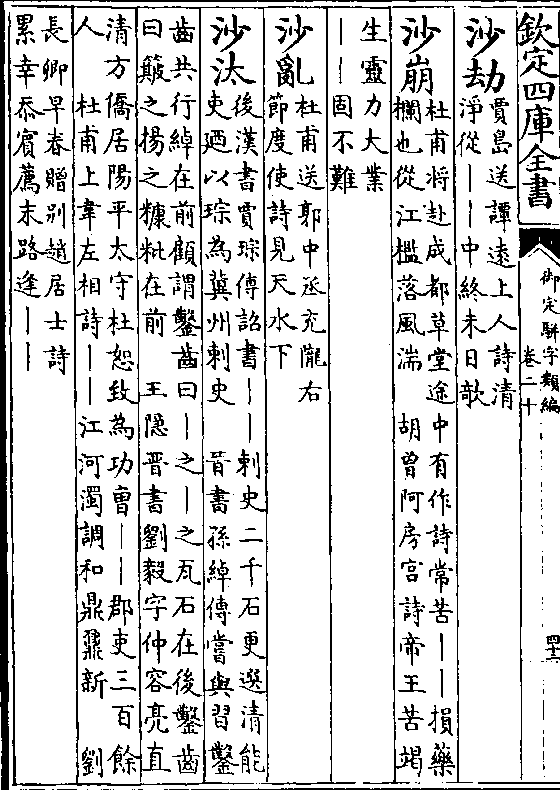 欽定四庫全書
御定駢字類編
卷二十
四十三
沙劫
賈島送譚遠上人詩清
淨從——中終未日歆
沙崩
杜甫將赴成都草堂途中有作詩常苦——損藥
欄也從江檻落風湍　胡曾阿房宫詩帝王苦竭
生靈力大業
——固不難
沙亂
杜甫送郭中丞充隴右
節度使詩見天水下
沙汰
後漢書賈琮傳詔書——刺史二千石更選清能
吏廼以琮為冀州刺史　晉書孫綽傳嘗與習鑿
齒共行綽在前顧謂鑿齒曰—之—之瓦石在後鑿齒
曰簸之揚之糠粃在前　王隱晉書劉毅字仲容亮直
清方僑居陽平太守杜恕致為功曹——郡吏三百餘
人　杜甫上韋左相詩——江河濁調和鼎鼐新　劉
長卿早春贈别趙居士詩
累幸忝賓薦末路逢——